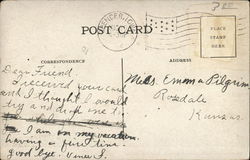 SPENCER, IOWA
POST CARD
PLACE
STAMP
HERE
CORRESPONDENCE
ADDRESS
Dear Friend
I received your card
and I thought I would
try and drop one to
I am on my vacation.
having a fine time.
good bye.
Miss. Emma Pilgrim
Rosedale
Kansas